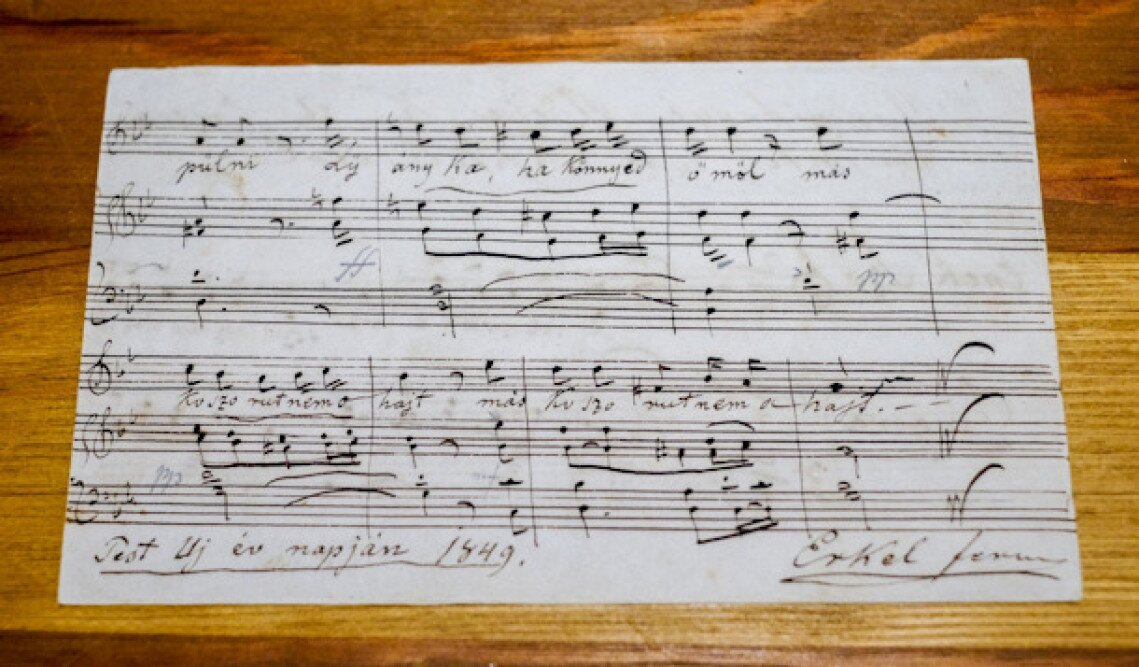 pulni lý ányka, ha könnyed ömöl más
ff
pp
koszorut nem a hajt más koszorut nem a hajt.
pp
Pest Uj év napján 1849. Erkel ferencz